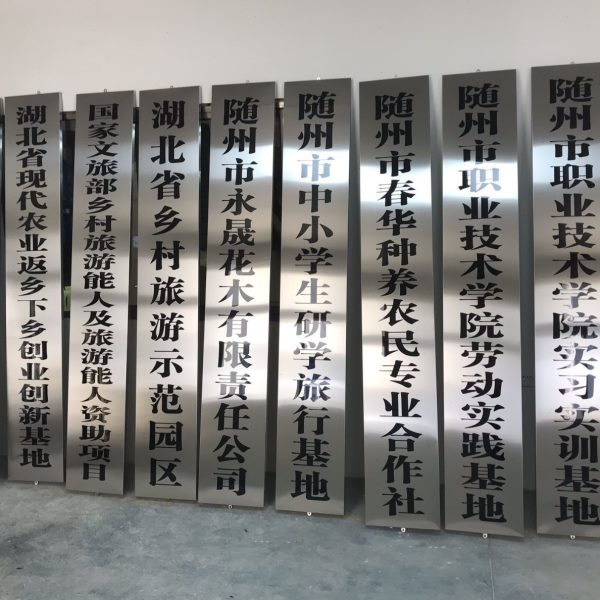 湖北省现代农业返乡下乡创业创新基地
国家文旅部乡村旅游能人及旅游能人资助项目
湖北省乡村旅游示范园区
随州市永晟花木有限责任公司
随州市中小学生研学旅行基地
随州市春华种养农民专业合作社
随州市职业技术学院劳动实践基地
随州市职业技术学院实习实训基地